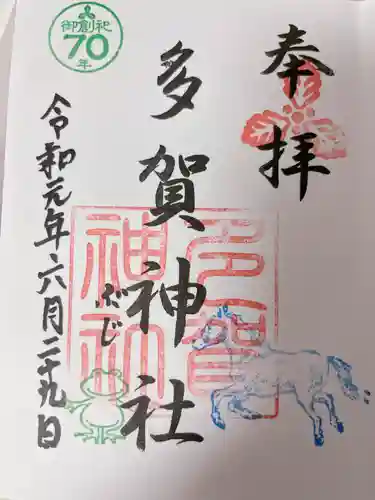 奉拝
多賀神社
だじ
令和元年六月二十九日
御創祀
70
年
多賀
神社